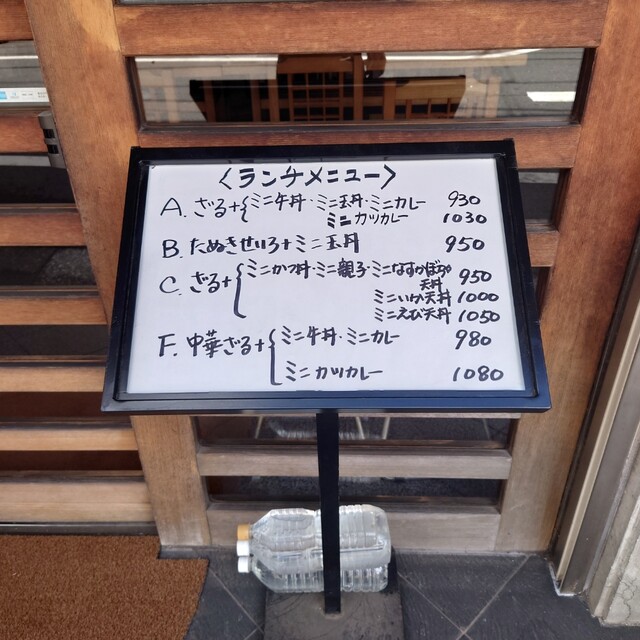 〈ランチメニュー〉
A. ざる+{ミニ牛丼・ミニ玉丼・ミニカレー 930
ミニカツカレー 1030
B. たぬきせいろ+ミニ玉丼 950
C. ざる+{ミニかつ丼・ミニ親子・ミニなすかぼちゃ天丼 950
ミニいか天丼 1000
ミニえび天丼 1050
F. 中華ざる+{ミニ牛丼・ミニカレー 980
ミニカツカレー 1080